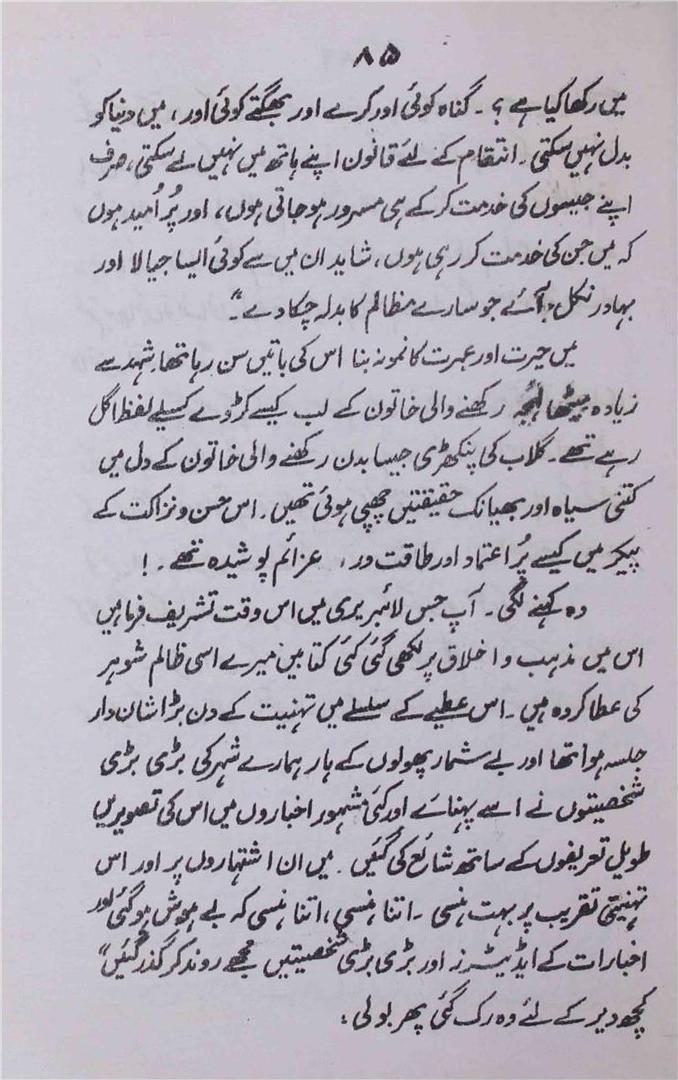 ۸۵
میں رکھا گیا ہے ؟ ۔ گناہ کوئی اور کرے اور بھگتے کوئی اور ، میں دنیا کو
بدل نہیں سکتی ۔ انتقام کے لئے قانون اپنے ہاتھ میں نہیں لے سکتی ، صرف
اپنے جیسوں کی خدمت کر کے ہی مسرور ہو جاتی ہوں ، اور پُر اُمید ہوں
کہ میں جن کی خدمت کر رہی ہوں ، شاید ان میں سے کوئی ایسا جیالا اور
بہادر نکل آئے جو سارے مظالم کا بدلہ چکا دے ۔"
میں حیرت اور عبرت کا نمونہ بنا اس کی باتیں سن رہا تھا شہد سے
زیادہ میٹھا لہجہ رکھنے والی خاتون کے لب کیسے کڑوے کسیلے لفظ اگل
رہے تھے ۔ گلاب کی پنکھڑی جیسا بدن رکھنے والی خاتون کے دل میں
کتنی سیاہ اور بھیانک حقیقتیں چھپی ہوئی تھیں ۔ اس حسن و نزاکت کے
پیکر میں کیسے پُر اعتماد اور طاقت ور ، عزائم پوشیدہ تھے ۔ !
وہ کہنے لگی ۔ آپ جس لائبریری میں اس وقت تشریف فرما ہیں
اس میں مذہب و اخلاق پر لکھی گئی کئی کتابیں میرے اسی ظالم شوہر
کی عطا کردہ ہیں ۔ اس عطیے کے سلسلے میں تہنیت کے دن بڑا شان دار
جلسہ ہوا تھا اور بے شمار پھولوں کے ہار ہمارے شہر کی بڑی بڑی
شخصیتوں نے اسے پہنائے اور کئی مشہور اخباروں میں اس کی تصویریں
طویل تعریفوں کے ساتھ شائع کی گئیں ۔ میں ان اشتہاروں پر اور اس
تہنیتی تقریب پر بہت ہنسی ۔ اتنا ہنسی ، اتنا ہنسی کہ بے ہوش ہو گئی اور
اخبارات کے ایڈیٹرز اور بڑی بڑی شخصیتیں مجھے روند کر گذر گئیں"
کچھ دیر کے لئے وہ رک گئی پھر بولی :